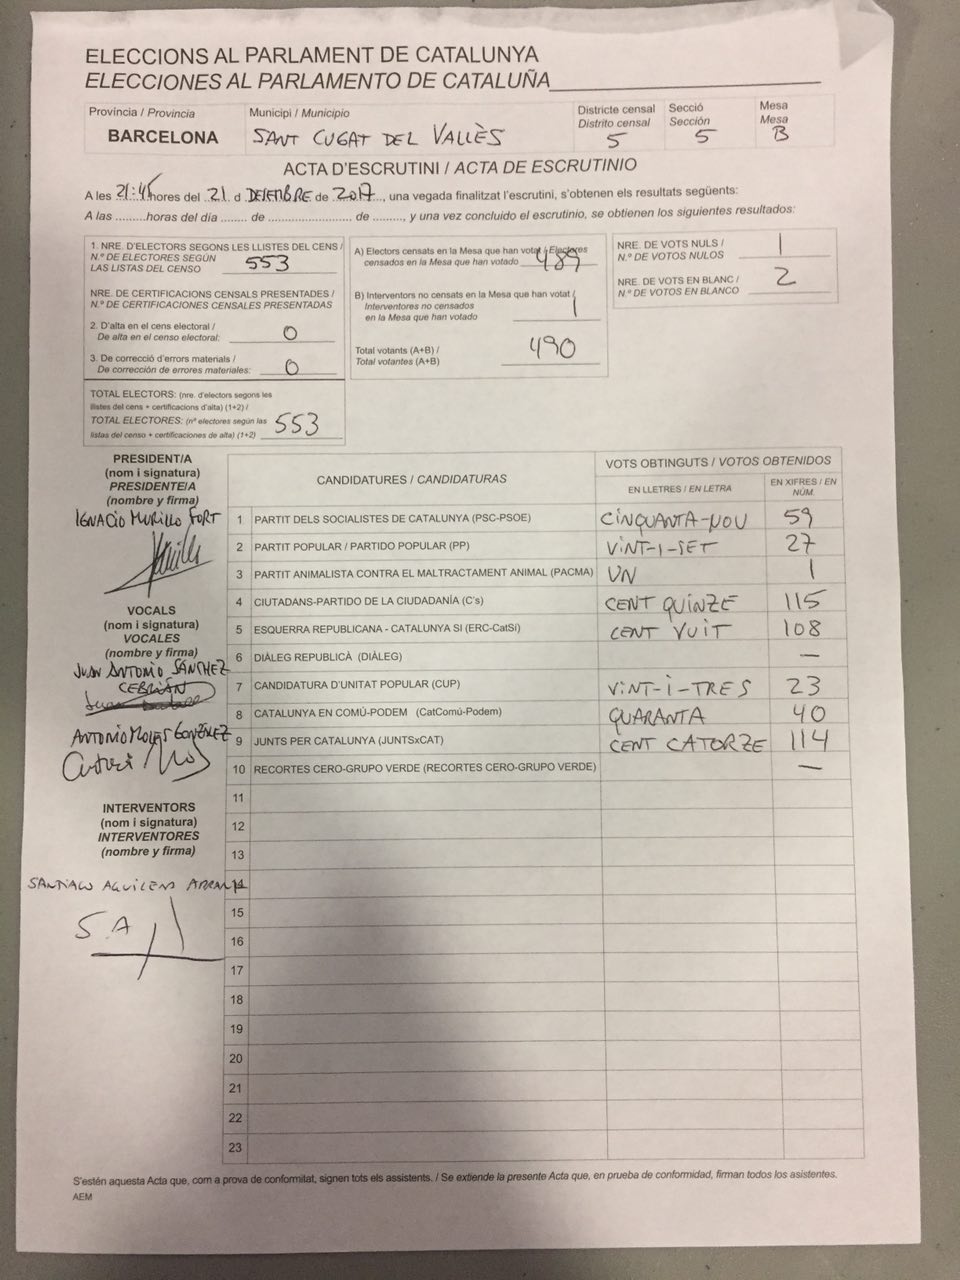 ELECCIONS AL PARLAMENT DE CATALUNYA
ELECCIONES AL PARLAMENTO DE CATALUÑA
Provincia / Provincia
BARCELONA
Municipi / Municipio
SANT CUGAT DEL VALLÈS
Districte censal
Distrito censal
5
Secció
Sección
5
Mesa
Mesa
B
ACTA D'ESCRUTINI / ACTA DE ESCRUTINIO
A les 21:45 hores del 21 d DESEMBRE de 2017, una vegada finalitzat l'escrutini, s'obtenen els resultats següents:
A las .........horas del día ........ de ......................... de ........., y una vez concluido el escrutinio, se obtienen los siguientes resultados:
1. NRE. D'ELECTORS SEGONS LES LLISTES DEL CENS /
N.º DE ELECTORES SEGÚN
LAS LISTAS DEL CENSO 553
NRE. DE CERTIFICACIONS CENSALS PRESENTADES /
N.º DE CERTIFICACIONES CENSALES PRESENTADAS
2. D'alta en el cens electoral /
De alta en el censo electoral: 0
3. De correcció d'errors materials /
De corrección de errores materiales: 0
TOTAL ELECTORS: (nre. d'electors segons les
llistes del cens + certificacions d'alta) (1+2) /
TOTAL ELECTORES: (nº electores según las
listas del censo + certificaciones de alta) (1+2) 553
A) Electors censats en la Mesa que han votat / Electores
censados en la Mesa que han votado 489
B) Interventors no censats en la Mesa que han votat /
Interventores no censados
en la Mesa que han votado 1
Total votants (A+B) /
Total votantes (A+B) 490
NRE. DE VOTS NULS /
N.º DE VOTOS NULOS 1
NRE. DE VOTS EN BLANC /
N.º DE VOTOS EN BLANCO 2
PRESIDENT/A
(nom i signatura)
PRESIDENTE/A
(nombre y firma)
IGNACIO MURILLO FORT
VOCALS
(nom i signatura)
VOCALES
(nombre y firma)
JUAN ANTONIO SÁNCHEZ
CEBRIÁN
ANTONIO GONZÁLEZ
INTERVENTORS
(nom i signatura)
INTERVENTORES
(nombre y firma)
SANTIAGO
S.A
CANDIDATURES / CANDIDATURAS
VOTS OBTINGUTS / VOTOS OBTENIDOS
EN LLETRES / EN LETRA
EN XIFRES / EN NÚM.
1 PARTIT DELS SOCIALISTES DE CATALUNYA (PSC-PSOE) CINQUANTA-NOU 59
2 PARTIT POPULAR / PARTIDO POPULAR (PP) VINT-I-SET 27
3 PARTIT ANIMALISTA CONTRA EL MALTRACTAMENT ANIMAL (PACMA) UN 1
4 CIUTADANS-PARTIDO DE LA CIUDADANÍA (C's) CENT QUINZE 115
5 ESQUERRA REPUBLICANA - CATALUNYA SI (ERC-CatSí) CENT VUIT 108
6 DIÀLEG REPUBLICÀ (DIÀLEG) —
7 CANDIDATURA D'UNITAT POPULAR (CUP) VINT-I-TRES 23
8 CATALUNYA EN COMÚ-PODEM (CatComú-Podem) QUARANTA 40
9 JUNTS PER CATALUNYA (JUNTSxCAT) CENT CATORZE 114
10 RECORTES CERO-GRUPO VERDE (RECORTES CERO-GRUPO VERDE) —
11
12
13
14
15
16
17
18
19
20
21
22
23
S'estén aquesta Acta que, com a prova de conformitat, signen tots els assistents. / Se extiende la presente Acta que, en prueba de conformidad, firman todos los asistentes.
AEM